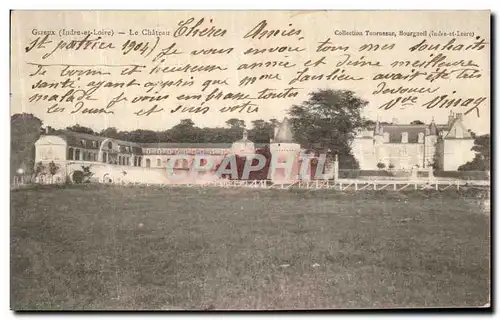 Gizeux (Indre-et-Loire) — Le Château
Collection Tourneux, Bourgueil (Indre-et-Loire)
Chères Amies,
St patrice 1904) Je vous envoie tous mes souhaits
de bonne et heureuse année et d'une meilleure
santé ayant appris que mme Janlieu avait été très
malade je vous embrasse toutes
et suis votre
dévouée
Vve Vinay
CPAPHIL